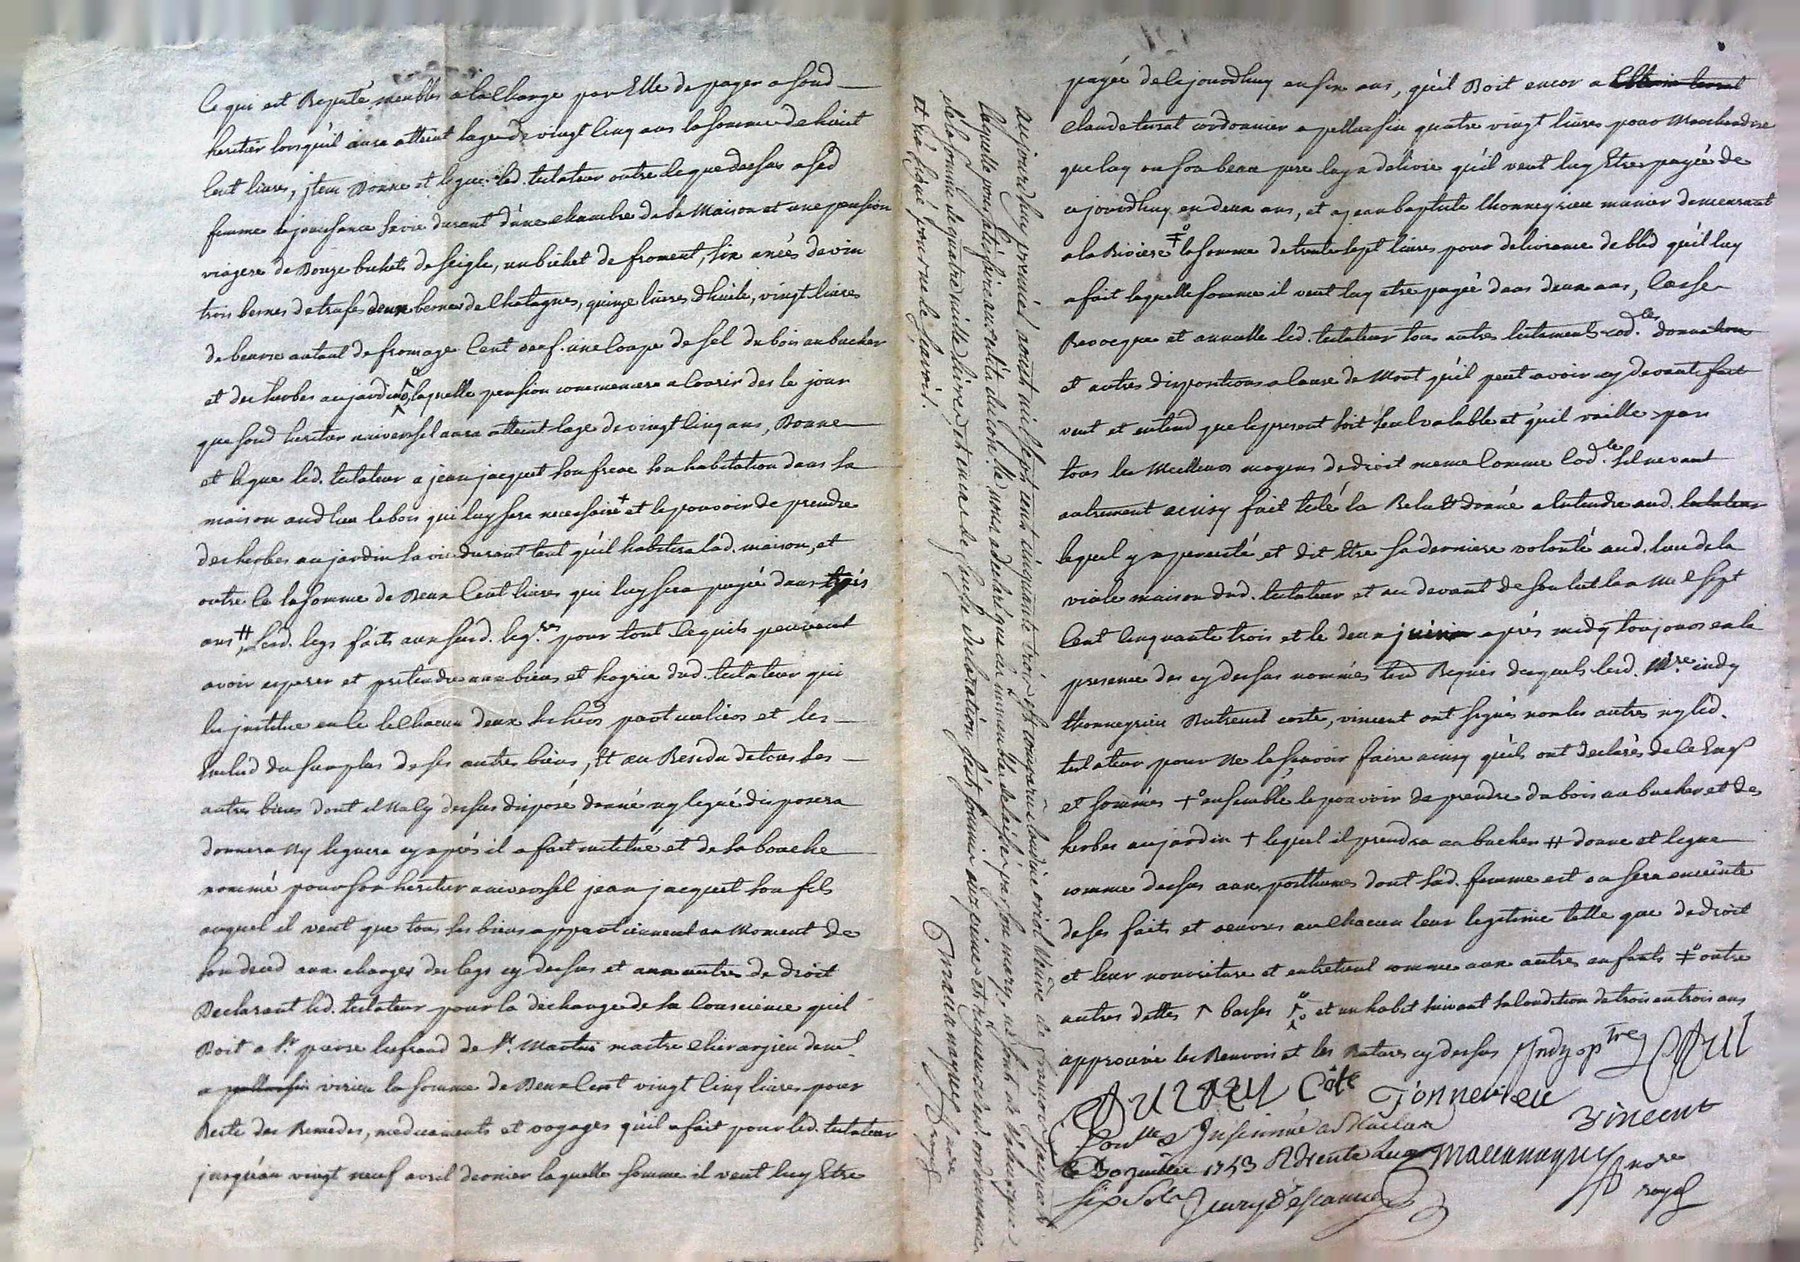 ce qui est Reputé meubles a la Charge par Elle de payer a sond
heritier lorsqu'il aura atteint lage de vingt cinq ans la somme de huit
Cent livres, jtem Donne et legue led. testateur outre le que dessus a sad
femme la jouissance sa vie durant d'une chambre de la Maison et une pension
viagere de Douze bichets de seigle, un bichet de froment, six anées de vin
trois bennes de trufes deux bennes de Chatagnes, quinze livres d'huile, vingt livres
de beurre autant de fromage Cent oeuf. une coupe de sel du bois au bucher
et des herbes au jardin laquelle pension commencera a Courir des le jour
que sond heritier universel aura atteint lage de vingt cinq ans, Donne
et legue led. testateur a jean jacquet son frere son habitation dans sa
maison aud lieu le bois qui luy sera necessaire + et le pouvoir de prendre
des herbes au jardin sa vie durant tant qu'il habitera lad. maison, et
outre ce la somme de Deux Cent livres qui luy sera payée dans trois
ans # lesd. legs faits aux susd. leg.res pour tout ce qu'ils peuvent
avoir esperer et pretendre aux biens et hoyrie dud. testateur qui
les jnstitue en ce le Chacun deux ses heros particuliers et les
exclud du surplus de ses autres biens, Et au Residu de tous ses
autres biens dont il Na cy dessus disposé donné ny legué disposera
donnera ny leguera cy après il a fait institué et de sa bouche
nommé pour son heritier universel jean jacquet son fils
auquel il veut que tous ses biens appartiennent au Moment de
son deced aux charges des legs cy dessus et aux autres de droit
Declarant led. testateur pour la décharge de sa Conscience qu'il
Doit a Sr. pierre de St. Martin maitre Chirurgien
a virieu la somme de Deux Cent vingt cinq livres pour
Reste des Remedes, medicaments et voyages qu'il a fait pour led. testateur
jusqu'au vingt neuf avril dernier laquelle somme il veut luy Etre
aujourdhuy premier aoust mil sept cent cinquante trois est comparüe veuve de françois jacquet
laquelle pour satisfaire au edit du nous a declaré que les immeubles delaissés par son mary, ne sont de valeur que
de la somme de quatre mille livres, et en a le declaration dit sermé aux peines et rigueurs des ordonnances
et n'a signé pour ne le sçavoir.
payée de ce jourdhuy en six ans, qu'il Doit encor a
Claude terrat cordonnier a pellussin quatre vingt livres pour Marchandise
que luy ou son beau pere luy a delivré qu'il veut luy Etre payée de
ce jourdhuy en deux ans, et a jean baptiste thonneyrieu munier demeurant
a la Riviere la somme de trente sept livres pour delivrance de bled qu'il luy
a fait laquelle somme il veut luy etre payée dans deux ans, Casse
Revocque et annulle led. testateur tous autres testaments cod.les donnations
et autres dispositions a Cause de Mort qu'il peut avoir cy devant fait
veut et entend que le present soit seul valable et qu'il vaille par
tous les Meilleurs moyens de droit meme Comme Cod.le sil ne vaut
autrement ainsy fait testé lu Relu et donné a Entendre aud. testateur
lequel y a percisté et dit Etre sa derniere volonté aud. lieu de la
viale maison dud. testateur et au devant de son lit lan Mil sept
Cent cinquante trois et le deux juin après midy toujours en la
presence des cy dessus nommés tesd Requis desquels lesd. Mre indy
thonneyrieu Dutreuil coste, vincent ont signés non les autres ny led.
testateur pour Ne le sçavoir faire ainsy qu'ils ont declarés de ce Enqs
et sommés +o ensemble le pouvoir de prendre du bois au bucher et des
herbes au jardin + lequel il prendra au bucher # donne et legue
comme dessus aux posthumes dont sad. femme est ou sera enceinte
de ses faits et oeuvres a un Chacun leur legitime telle que de droit
et leur nourriture et entretient comme aux autres enfants ‡o outre
autres dettes basses et un habit suivant sa Condition de trois en trois ans
approuvé les Renvois et les Ratures cy dessus Jndy ptre
Côte Tonnerieu
Vincent
Controllé & Jnsinüé a
le 30 juillet 1753
six sols